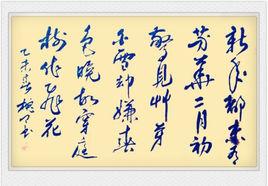 新年都未有
芳華二月初
驚見草芽
白雪却嫌春
色晚故穿庭
樹作飛花
乙未春